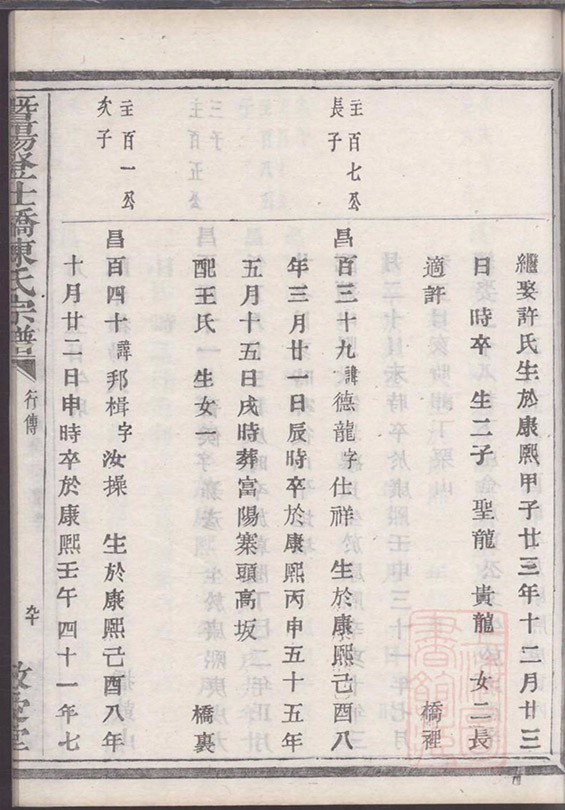 繼娶許氏生於康熙甲子廿三年十二月廿三
日 時卒 生二子 聖龍 貴龍 女二長
適許 橋裡
主百七公
長子
昌百三十九諱德龍字仕祥 生於康熙己酉八
年三月廿一日辰時卒於康熙丙申五十五年
五月十五日戌時葬富陽寨頭高坂
配王氏 生女一 橋裏
主百一公
次子
昌百四十諱邦楫字汝操 生於康熙己酉八年
十月廿二日申時卒於康熙壬午四十一年七
暨陽登仕橋陳氏宗譜
行傳